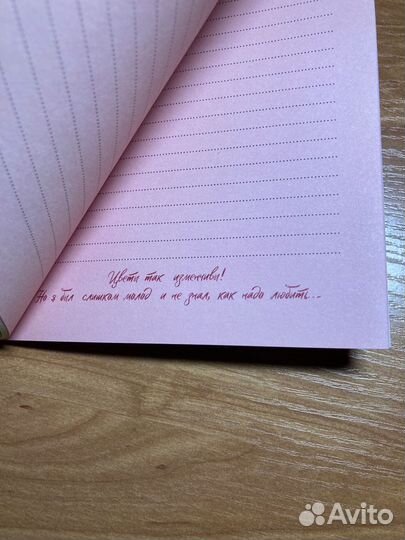 Цветы так изменчивы!
Но я был слишком молод и не знал, как надо любить...
Avito